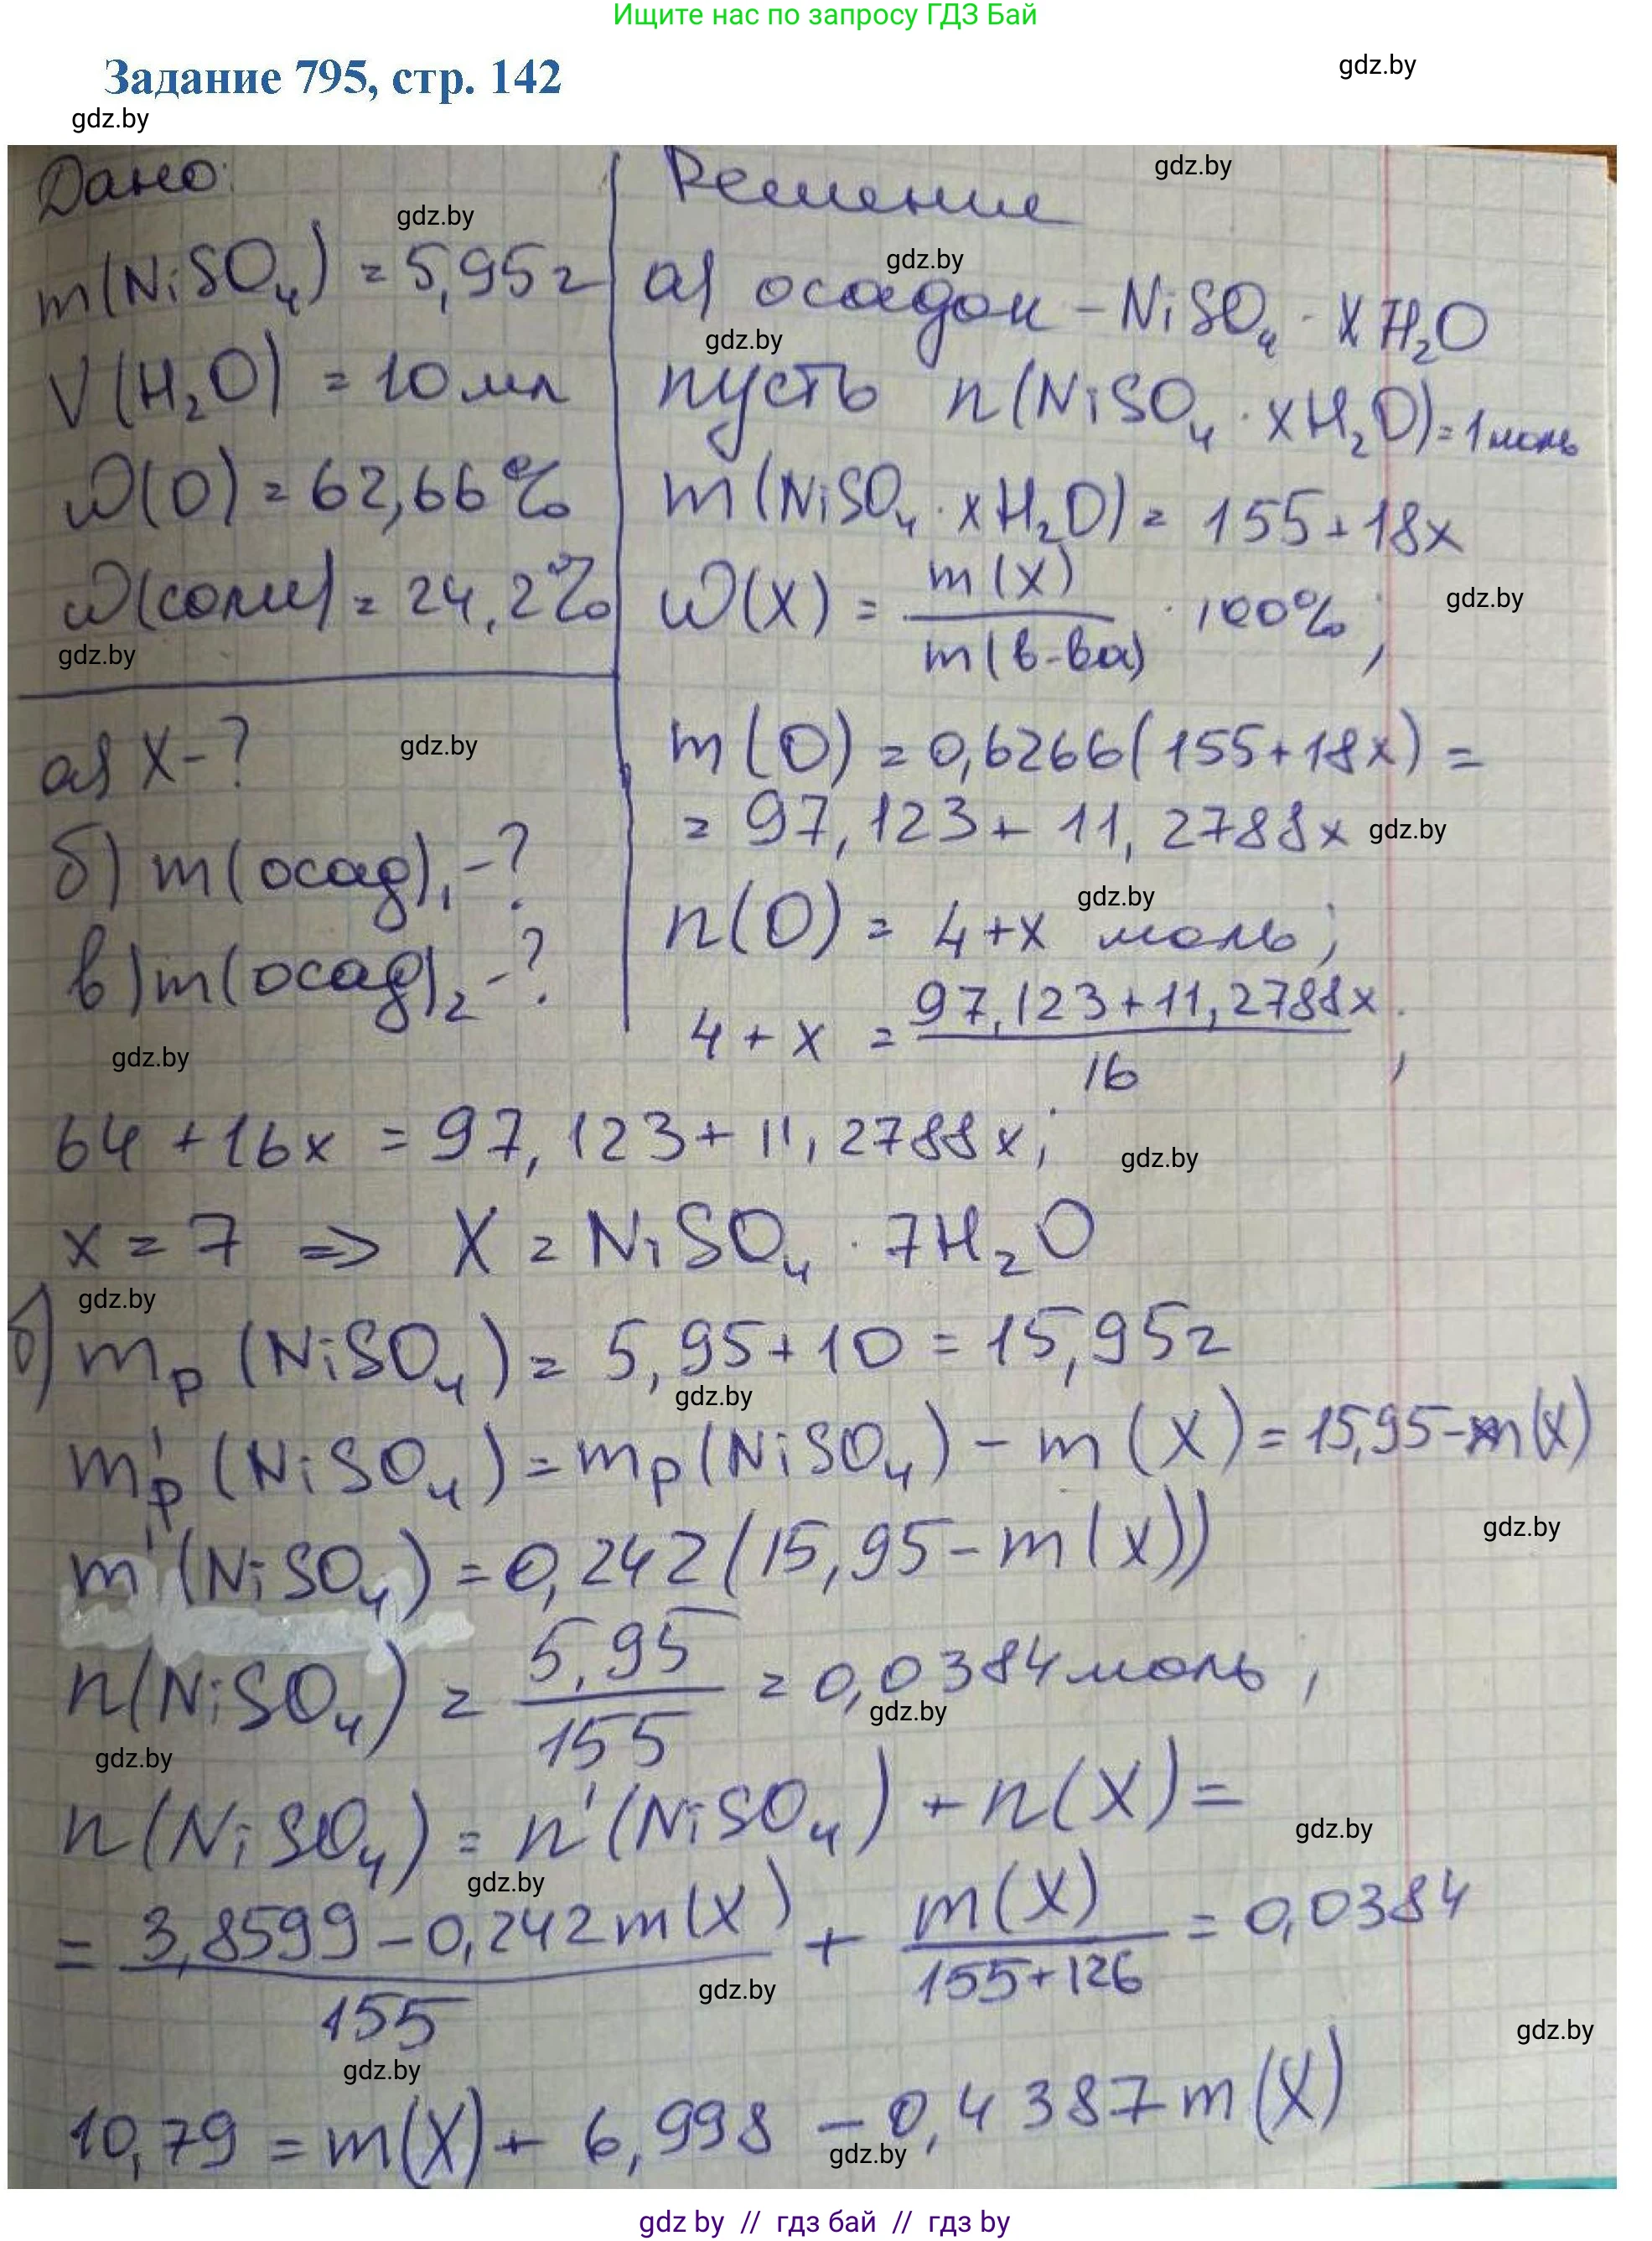 Ищите нас по запросу ГДЗ Бай
Задание 795, стр. 142
gdz.by
gdz.by
Дано:
m(NiSO₄) = 5,95 г
V(H₂O) = 10 мл
ω(O) = 62,66%
ω(соли) = 24,2%
а) X - ?
б) m(осад)₁ - ?
в) m(осад)₂ - ?
Решение
а) осадок - NiSO₄ · XH₂O
пусть n(NiSO₄ · xH₂O) = 1 моль
m(NiSO₄ · xH₂O) = 155 + 18x
ω(X) = m(X) / m(в-ва) · 100%;
m(O) = 0,6266(155+18x) =
= 97,123 + 11,2788x
n(O) = 4+x моль;
4 + x = 97,123+11,2788x / 16;
64 + 16x = 97,123 + 11,2788x;
x = 7 => X = NiSO₄ · 7H₂O
б) mр(NiSO₄) = 5,95 + 10 = 15,95 г
m'р(NiSO₄) = mр(NiSO₄) - m(X) = 15,95 - m(X)
m'(NiSO₄) = 0,242(15,95 - m(X))
n(NiSO₄) = 5,95 / 155 = 0,0384 моль;
n(NiSO₄) = n'(NiSO₄) + n(X) =
= 3,8599 - 0,242m(X) / 155 + m(X) / 155+126 = 0,0384
10,79 = m(X) + 6,998 - 0,4387m(X)
gdz by // гдз бай // гдз by